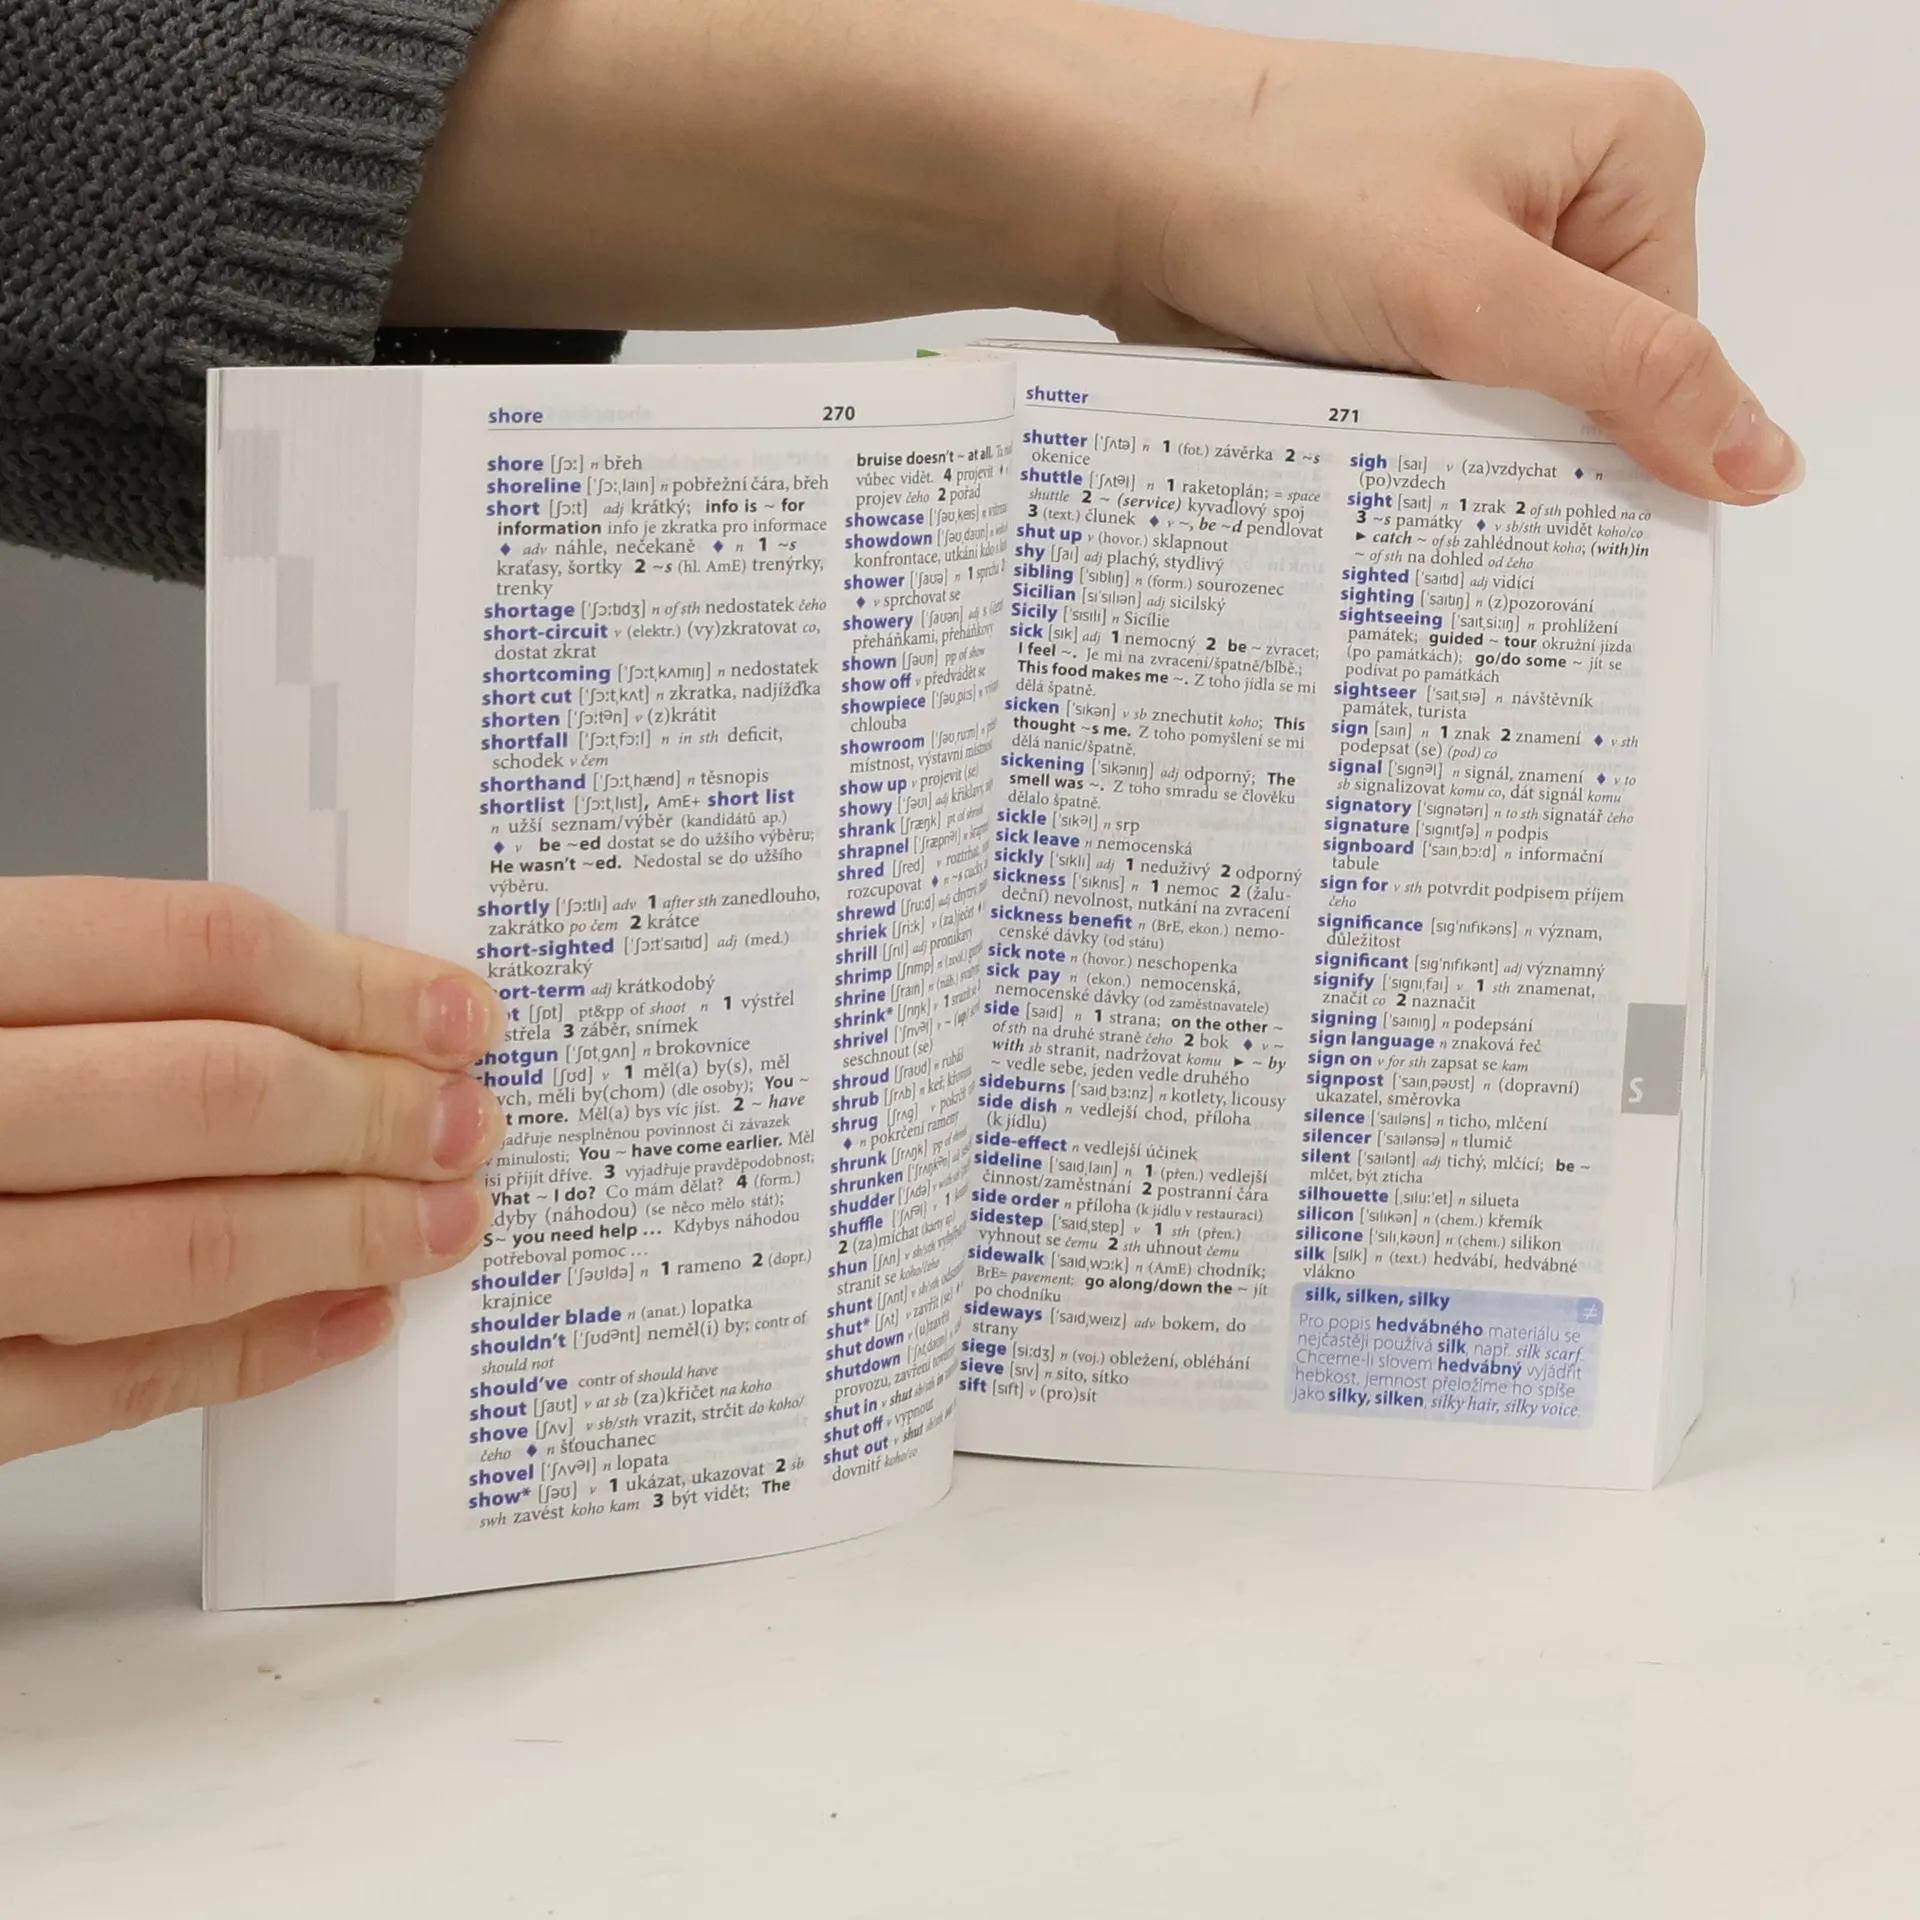 shore
270
shore [ʃɔː] n břeh
shoreline [ˈʃɔːˌlaɪn] n pobřežní čára, břeh
short [ʃɔːt] adj krátký; info is ~ for
information info je zkratka pro informace
♦ adv náhle, nečekaně ♦ n 1 ~s
kraťasy, šortky 2 ~s (hl. AmE) trenýrky,
trenky
shortage [ˈʃɔːtɪdʒ] n of sth nedostatek čeho
short-circuit v (elektr.) (vy)zkratovat co,
dostat zkrat
shortcoming [ˈʃɔːtˌkʌmɪŋ] n nedostatek
short cut [ˈʃɔːtˌkʌt] n zkratka, nadjížďka
shorten [ˈʃɔːtᵊn] v (z)krátit
shortfall [ˈʃɔːtˌfɔːl] n in sth deficit,
schodek v čem
shorthand [ˈʃɔːtˌhænd] n těsnopis
shortlist [ˈʃɔːtˌlɪst], AmE+ short list
n užší seznam/výběr (kandidátů ap.)
♦ v be ~ed dostat se do užšího výběru;
He wasn't ~ed. Nedostal se do užšího
výběru.
shortly [ˈʃɔːtlɪ] adv 1 after sth zanedlouho,
zakrátko po čem 2 krátce
short-sighted [ˈʃɔːtˈsaɪtɪd] adj (med.)
krátkozraký
ort-term adj krátkodobý
t [ʃɒt] pt&pp of shoot n 1 výstřel
střela 3 záběr, snímek
shotgun [ˈʃɒtˌgʌn] n brokovnice
hould [ʃʊd] v 1 měl(a) by(s), měl
ych, měli by(chom) (dle osoby); You ~
t more. Měl(a) bys víc jíst. 2 ~ have
jadřuje nesplněnou povinnost či závazek
v minulosti; You ~ have come earlier. Měl
jsi přijít dříve. 3 vyjadřuje pravděpodobnost;
What ~ I do? Co mám dělat? 4 (form.)
dyby (náhodou) (se něco mělo stát);
S~ you need help ... Kdybys náhodou
potřeboval pomoc ...
shoulder [ˈʃəʊldə] n 1 rameno 2 (dopr.)
krajnice
shoulder blade n (anat.) lopatka
shouldn't [ˈʃʊdᵊnt] neměl(i) by; contr of
should not
should've contr of should have
shout [ʃaʊt] v at sb (za)křičet na koho
shove [ʃʌv] v sb/sth vrazit, strčit do koho/
čeho ♦ n šťouchanec
shovel [ˈʃʌvᵊl] n lopata
show* [ʃəʊ] v 1 ukázat, ukazovat 2 sb
swh zavést koho kam 3 být vidět; The
bruise doesn't ~ at all.
vůbec vidět. 4 projevit
projev čeho 2 pořad
showcase [ˈʃəʊˌkeɪs] n
showdown [ˈʃəʊˌdaʊn] n
konfrontace, utkání
shower [ˈʃaʊə] n 1 sprcha
♦ v sprchovat se
showery [ˈʃaʊərɪ] adj
přeháňkami, přeháňkový
shown [ʃəʊn] pp of show
show off v předvádět se
showpiece [ˈʃəʊˌpiːs] n
chlouba
showroom [ˈʃəʊˌruːm] n
místnost, výstavní místnost
show up v projevit (se)
showy [ˈʃəʊɪ] adj křiklavý
shrank [ʃræŋk] pt of shrink
shrapnel [ˈʃræpnᵊl] n
shred [ʃred] v roztrhat,
rozcupovat ♦ n ~s
shrewd [ʃruːd] adj chytrý
shriek [ʃriːk] v (za)ječet
shrill [ʃrɪl] adj pronikavý
shrimp [ʃrɪmp] n (zool.)
shrine [ʃraɪn] n (náb.)
shrink* [ʃrɪŋk] v 1
shrivel [ˈʃrɪvᵊl] v ~ (up)
seschnout (se)
shroud [ʃraʊd] n rubáš
shrub [ʃrʌb] n keř, křovina
shrug [ʃrʌg] v pokrčit
♦ n pokrčení rameny
shrunk [ʃrʌŋk] pp of shrink
shrunken [ˈʃrʌŋkən] adj
shudder [ˈʃʌdə] v
shuffle [ˈʃʌfᵊl] v 1
2 (za)míchat (karty ap.)
shun [ʃʌn] v sb/sth vyhýbat
stranit se koho/čeho
shunt [ʃʌnt] v sb/sth
shut* [ʃʌt] v zavřít (se)
shut down v (u)zavřít
shutdown [ˈʃʌtˌdaʊn] n
provozu, zavření továrny
shut in v shut sb/sth in
shut off v vypnout
shut out v shut sb/sth out
dovnitř koho/co
shutter
271
shutter [ˈʃʌtə] n 1 (fot.) závěrka 2 ~s
okenice
shuttle [ˈʃʌtᵊl] n 1 raketoplán; = space
shuttle 2 ~ (service) kyvadlový spoj
3 (text.) člunek ♦ v ~, be ~d pendlovat
shut up v (hovor.) sklapnout
shy [ʃaɪ] adj plachý, stydlivý
sibling [ˈsɪblɪŋ] n (form.) sourozenec
Sicilian [sɪˈsɪlɪən] adj sicilský
Sicily [ˈsɪsɪlɪ] n Sicílie
sick [sɪk] adj 1 nemocný 2 be ~ zvracet;
I feel ~. Je mi na zvracení/špatně/blbě.;
This food makes me ~. Z toho jídla se mi
dělá špatně.
sicken [ˈsɪkən] v sb znechutit koho; This
thought ~s me. Z toho pomyšlení se mi
dělá nanic/špatně.
sickening [ˈsɪkənɪŋ] adj odporný; The
smell was ~. Z toho smradu se člověku
dělalo špatně.
sickle [ˈsɪkᵊl] n srp
sick leave n nemocenská
sickly [ˈsɪklɪ] adj 1 neduživý 2 odporný
sickness [ˈsɪknɪs] n 1 nemoc 2 (žalu-
deční) nevolnost, nutkání na zvracení
sickness benefit n (BrE, ekon.) nemo-
censké dávky (od státu)
sick note n (hovor.) neschopenka
sick pay n (ekon.) nemocenská,
nemocenské dávky (od zaměstnavatele)
side [saɪd] n 1 strana; on the other ~
of sth na druhé straně čeho 2 bok ♦ v ~
with sb stranit, nadržovat komu ► ~ by
~ vedle sebe, jeden vedle druhého
sideburns [ˈsaɪdˌbɜːnz] n kotlety, licousy
side dish n vedlejší chod, příloha
(k jídlu)
side-effect n vedlejší účinek
sideline [ˈsaɪdˌlaɪn] n 1 (přen.) vedlejší
činnost/zaměstnání 2 postranní čára
side order n příloha (k jídlu v restauraci)
sidestep [ˈsaɪdˌstep] v 1 sth (přen.)
vyhnout se čemu 2 sth uhnout čemu
sidewalk [ˈsaɪdˌwɔːk] n (AmE) chodník;
BrE= pavement; go along/down the ~ jít
po chodníku
sideways [ˈsaɪdˌweɪz] adv bokem, do
strany
siege [siːdʒ] n (voj.) obležení, obléhání
sieve [sɪv] n síto, sítko
sift [sɪft] v (pro)sít
sigh [saɪ] v (za)vzdychat ♦ n
(po)vzdech
sight [saɪt] n 1 zrak 2 of sth pohled na co
3 ~s památky ♦ v sb/sth uvidět koho/co
► catch ~ of sb zahlédnout koho; (with)in
~ of sth na dohled od čeho
sighted [ˈsaɪtɪd] adj vidící
sighting [ˈsaɪtɪŋ] n (z)pozorování
sightseeing [ˈsaɪtˌsiːɪŋ] n prohlížení
památek; guided ~ tour okružní jízda
(po památkách); go/do some ~ jít se
podívat po památkách
sightseer [ˈsaɪtˌsɪə] n návštěvník
památek, turista
sign [saɪn] n 1 znak 2 znamení ♦ v sth
podepsat (se) (pod) co
signal [ˈsɪgnᵊl] n signál, znamení ♦ v to
sb signalizovat komu co, dát signál komu
signatory [ˈsɪgnətərɪ] n to sth signatář čeho
signature [ˈsɪgnɪtʃə] n podpis
signboard [ˈsaɪnˌbɔːd] n informační
tabule
sign for v sth potvrdit podpisem příjem
čeho
significance [sɪgˈnɪfɪkəns] n význam,
důležitost
significant [sɪgˈnɪfɪkənt] adj významný
signify [ˈsɪgnɪˌfaɪ] v 1 sth znamenat,
značit co 2 naznačit
signing [ˈsaɪnɪŋ] n podepsání
sign language n znaková řeč
sign on v for sth zapsat se kam
signpost [ˈsaɪnˌpəʊst] n (dopravní)
ukazatel, směrovka
silence [ˈsaɪləns] n ticho, mlčení
silencer [ˈsaɪlənsə] n tlumič
silent [ˈsaɪlənt] adj tichý, mlčící; be ~
mlčet, být zticha
silhouette [ˌsɪluːˈet] n silueta
silicon [ˈsɪlɪkən] n (chem.) křemík
silicone [ˈsɪlɪˌkəʊn] n (chem.) silikon
silk [sɪlk] n (text.) hedvábí, hedvábné
vlákno
silk, silken, silky ≠
Pro popis hedvábného materiálu se
nejčastěji používá silk, např. silk scarf.
Chceme-li slovem hedvábný vyjádřit
hebkost, jemnost přeložíme ho spíše
jako silky, silken, silky hair, silky voice.
S